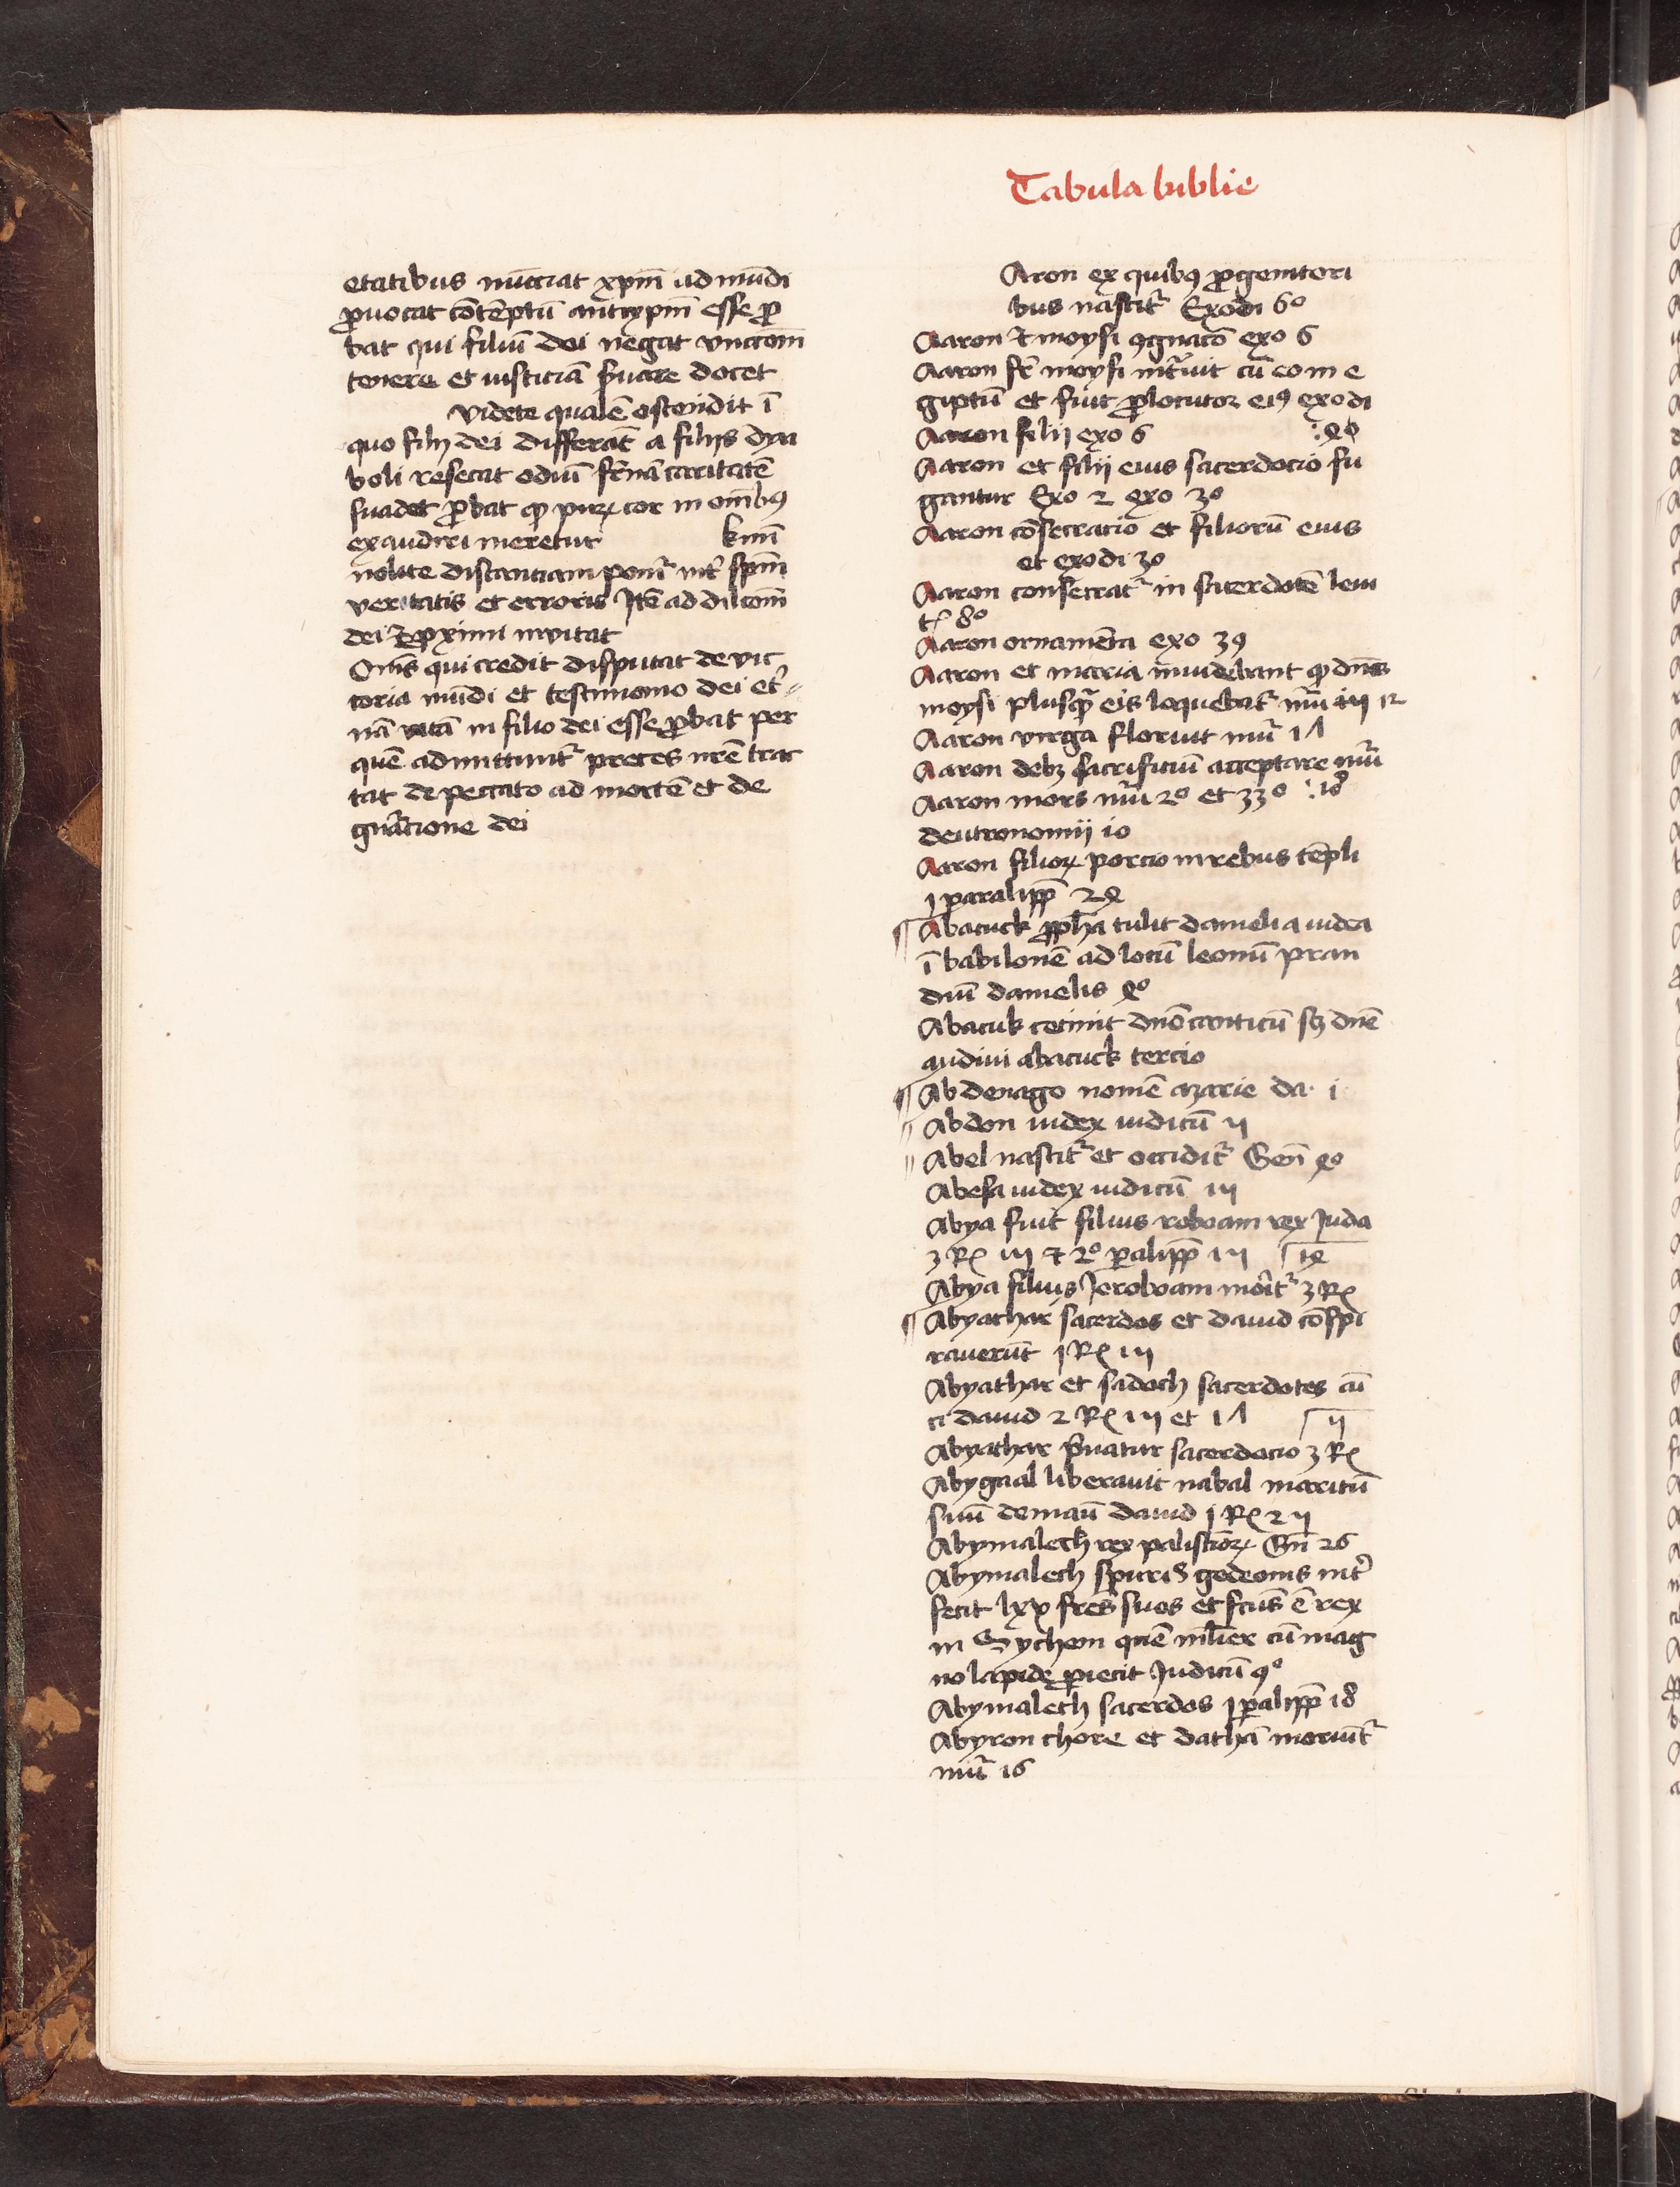 etatibus nūcciat xp̄m ad mūdi
ꝓuocat cōtēptū antixp̄m esse ꝓ
bat qui filiū dei negat vnccōm
tenere et iusticiā s̄uare docet
Videte qualē ostendit ī
quo filij dei differāt a filijs dya
boli resecat odiū fr̄nā caritatē
suadet ꝓbat ꝙ puꝝ cor in oīnibꝯ
exaudiri meretur
nolite distanciam poniť int̄ sp̄m
veritatis et erroris Itē ad dilc̄com
dei ⁊ ꝓximi invitat
Om̄s qui credit disputat de vic
toria mūdi et testimonio dei et̄
nā vitā in filio dei esse ꝓbat per
quē admittunt᷑ preces nr̄e trac
tat de peccato ad mortē et de
gnāc̄ione dei
Tabula biblie
Aron ex quibꝯ ꝓgenitori
bus nascit᷑ Exodi 6o
Aaron ⁊ moysi ꝯgnac̄o exo 6
Aaron fr̄ moysi int̄uit cū eo in e
giptū et fuit ꝓlocutor eiꝯ exodi
Aaron filij exo 6 :4o
Aaron et filij eius sacerdocio fu
gantur Exo 2 exo 30
Aaron cōsecratio et filiorū eius
et exodi 30
Aaron consecrat᷑ in sacerdotē leui
tꝭ 8o
Aaron ornamēta exo 39
Aaron et maria inuidebant ꝙ dn̄s
moysi plusꝙ̄ eis loquebat᷑ nūi 12
Aaron virga floruit nū᷑ 1Λ
Aaron debꝫ sacrificiū acceptare nū᷑
Aaron mors nū᷑ 20 et 33o :18
deutronomij io
Aaron filioꝝ porcio in rebus tēpli
1 paralipp̄ 24
¶ Abacuck ꝓph̄a tulit danieli a iudea
ī babilonē ad locū leonū pran
diū danielis 4o
Abacuk cecinit dn̄o canticū sꝫ dn̄e
audiui abacuck tercio
¶ Abdenago nomē azarie da· i
〃 Abdon iudex iudicū ıı
〃 Abel nascit᷑ et occidit᷑ Gen̄ 4o
Abesa iudex iudicū ııı
Abya fuit filius roboam rex Juda
3 Rꝭ ııı ⁊ 2o ꝑalipp̄ ııı ⌈14
Abya filius Jeroboam morit᷑ 3 Rꝭ
¶ Abyathar sacerdos et dauid cōspi
rauerūt 1 Rꝭ ııı
Abyathar et sadoch sacerdotes cū
ti dauid 2 Rꝭ ııı et 1Λ ⌈ıı
Abyathar p̄uatur sacerdocio 3 Rꝭ
Abygaal liberauit nabal maritū
suū de manū dauid 1 Rꝭ 2ıı
Abymalech rex palistīoꝝ Gn̄ 26
Abymalech spuriꝯ gedeonis int̄
fecit lxx fr̄es suos et fc̄us ē rex
in Sychem quē mul̄ier cū mag
no lapide ꝓiecit Judicū 9o
Abymalech sacerdos 1 ꝑalipp̄ 18
Abyron chore et dathā moriūt᷑
nū᷑ 16